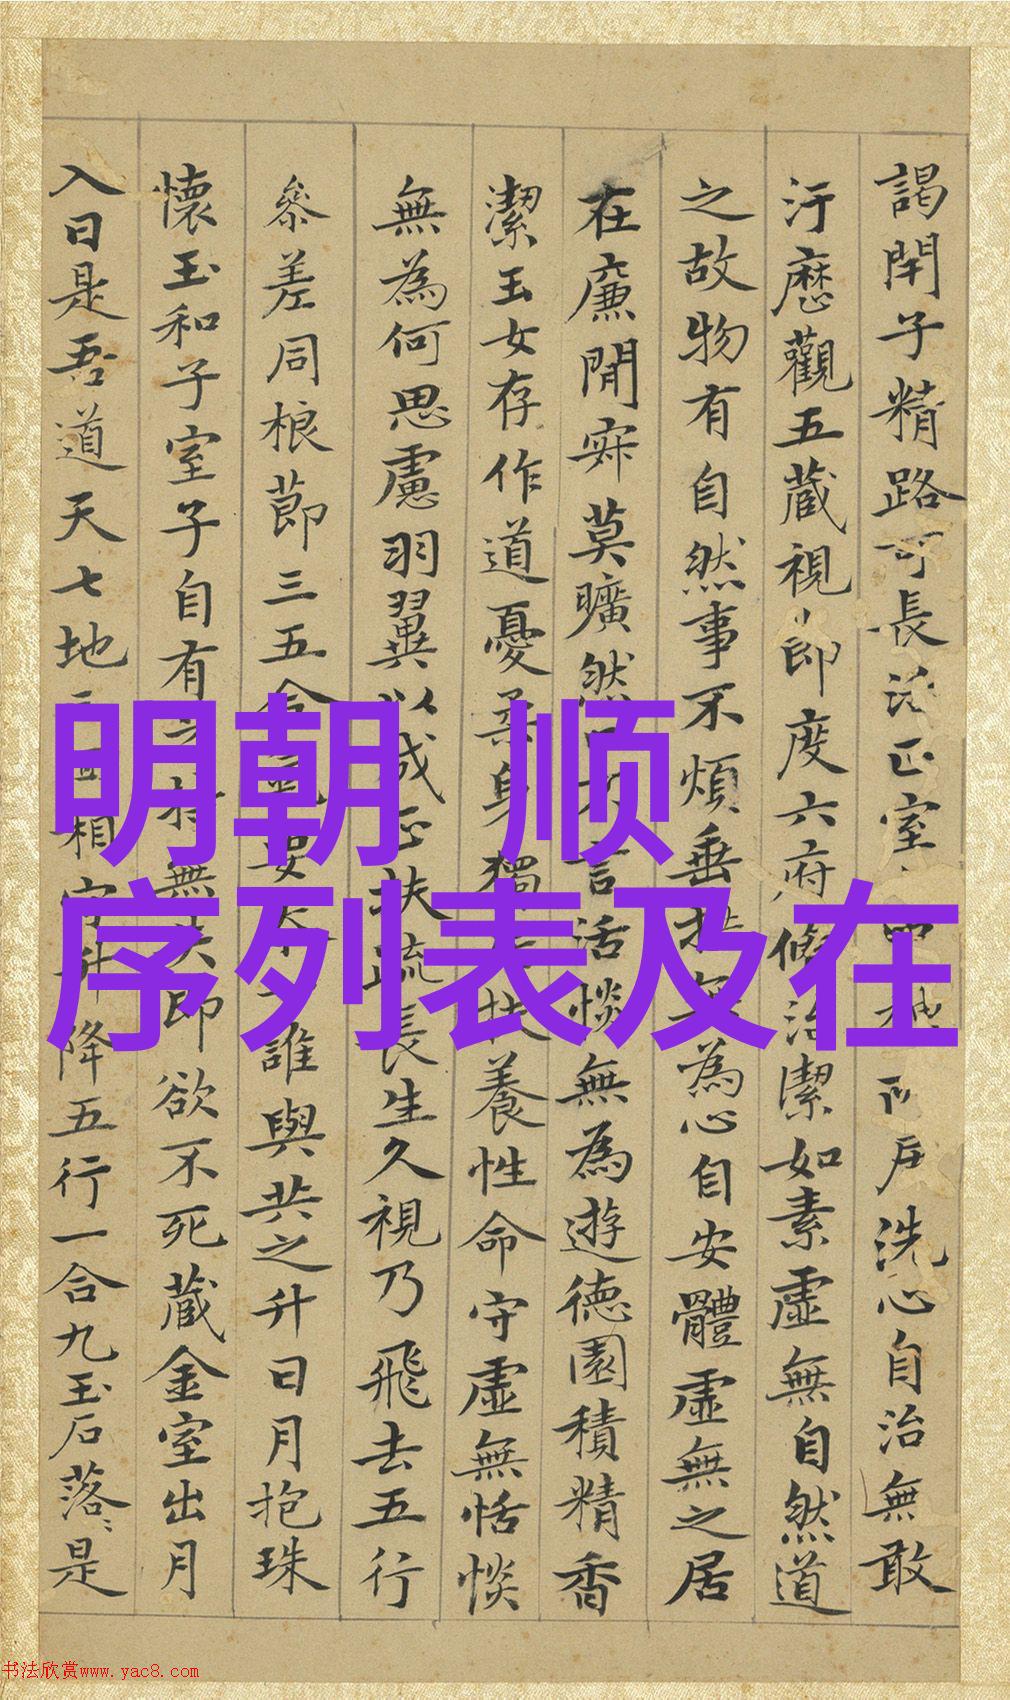 謁閇子精路可長活正室
洗心自治無敢
汙歷觀五藏視節度六府脩治潔如素虛無自然道
之故物有自然事不煩垂拱無為心自安體虛無之居
在廉閒寂莫曠然口不言活惔無為遊德園積精香
潔玉女存作道憂柔身獨扶養性命守虛無恬惔
無為何思慮羽翼以成正扶疏長生久視乃飛去五行
參差同根莭三五合氣要本誰與共之升日月抱珠
懷玉和子室子自有之持無失即欲不死藏金室出月
入日是吾道天七地三五相守升降五行一合九玉石落〻是
明朝 顺
序列表及在
书法欣赏www.yac8.com